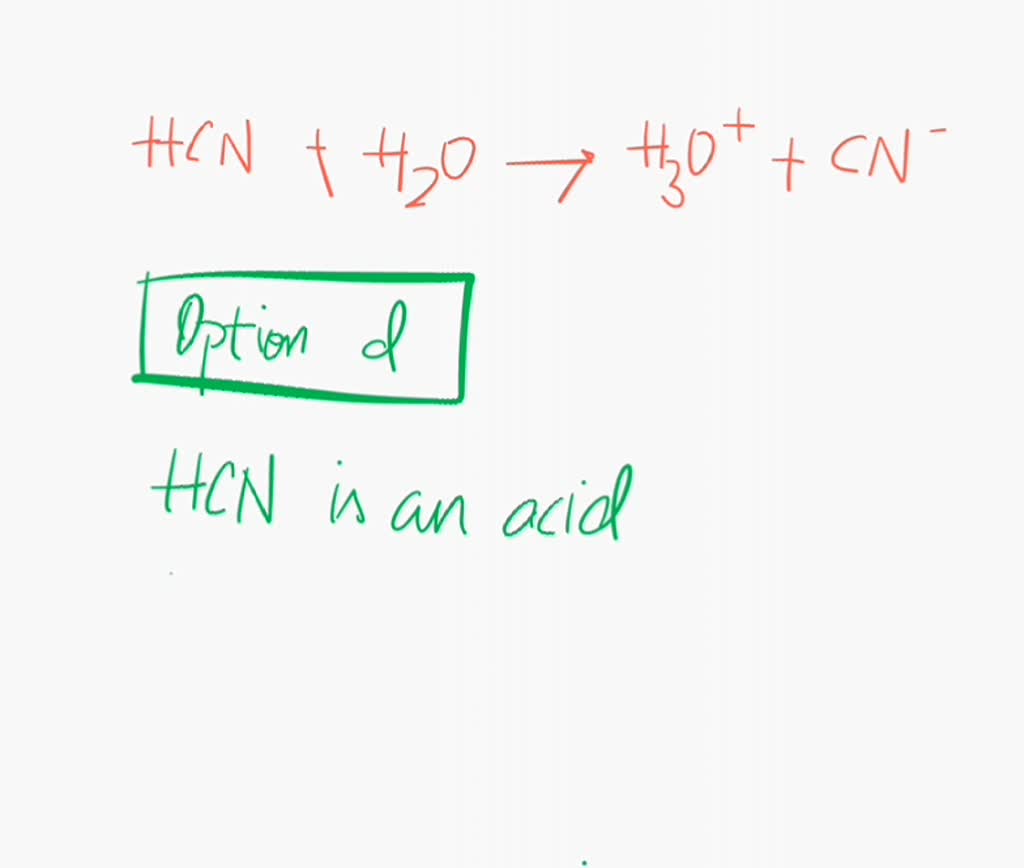 HCN + H₂O → H₃O⁺ + CN⁻
Option d
HCN is an acid